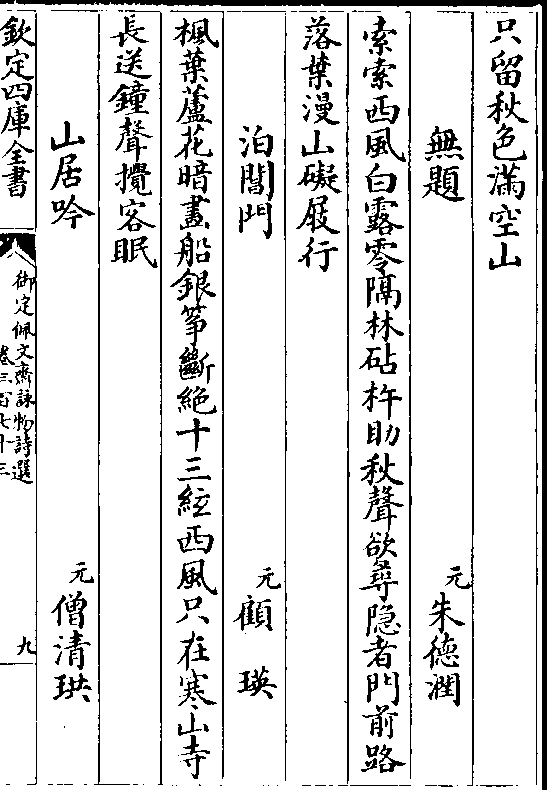 只留秋色滿空山
無題　元朱德潤
索索西風白露零隔林砧杵助秋聲欲尋隠者門前路
落葉漫山礙屐行
泊閶門　元顧瑛
楓葉蘆花暗畫船銀筝斷絶十三絃西風只在寒山寺
長送鐘聲攪客眠
山居吟　元僧清珙
欽定四庫全書
御定佩文齋詠物詩選
卷三百七十三
九